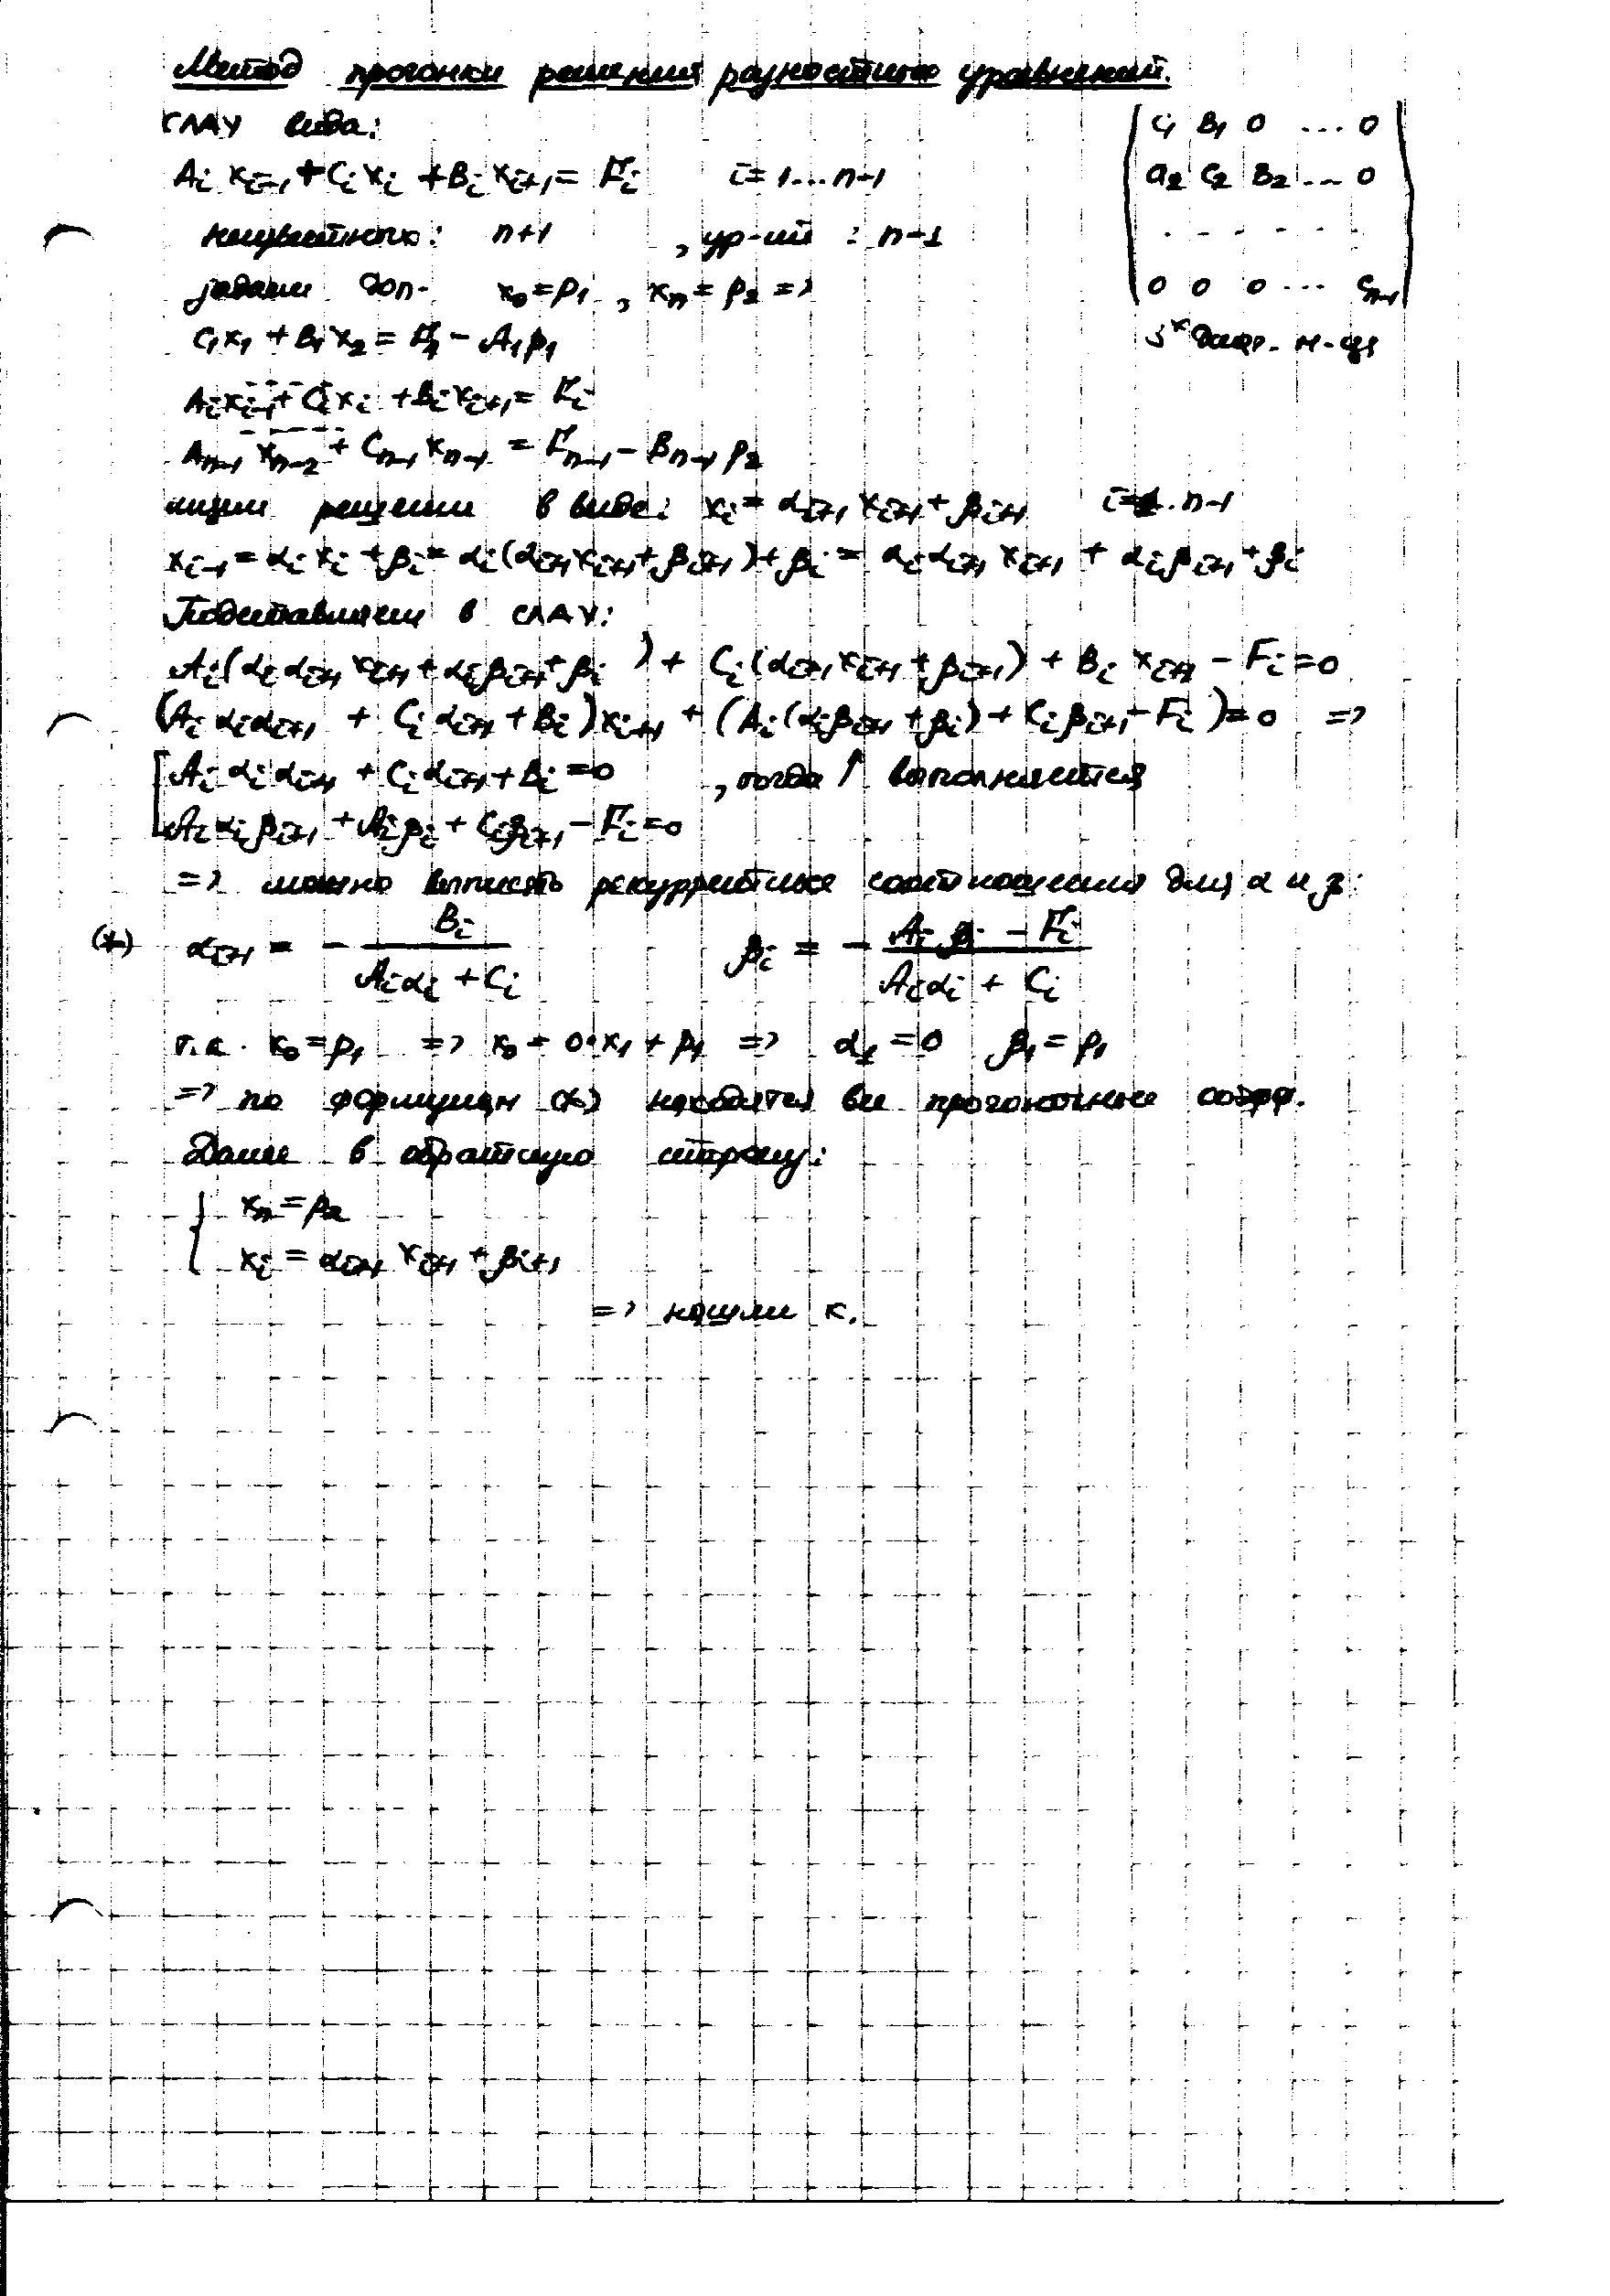 Метод прогонки решения разностных уравнений.
СЛАУ вида:
A_i x_{i-1} + C_i x_i + B_i x_{i+1} = F_i    i = 1...n-1
неизвестных: n+1 , ур-ий : n-1
задаём доп. x_0 = p_1 , x_n = p_2 =>
C_1 x_1 + B_1 x_2 = F_1 - A_1 p_1
A_i x_{i-1} + C_i x_i + B_i x_{i+1} = F_i
A_{n-1} x_{n-2} + C_{n-1} x_{n-1} = F_{n-1} - B_{n-1} p_2
C_1 B_1 0 ... 0
a_2 C_2 B_2 ... 0
. - - - - -
0 0 0 ... C_{n-1}
3^х диаг. м-ца
ищем решении в виде: x_i = α_{i+1} x_{i+1} + β_{i+1}    i = .. n-1
x_{i-1} = α_i x_i + β_i = α_i (α_{i+1} x_{i+1} + β_{i+1}) + β_i = α_i α_{i+1} x_{i+1} + α_i β_{i+1} + β_i
Подставляем в СЛАУ:
A_i (α_i α_{i+1} x_{i+1} + α_i β_{i+1} + β_i ) + C_i (α_{i+1} x_{i+1} + β_{i+1}) + B_i x_{i+1} - F_i = 0
(A_i α_i α_{i+1} + C_i α_{i+1} + B_i) x_{i+1} + (A_i (α_i β_{i+1} + β_i) + C_i β_{i+1} - F_i) = 0 =>
[ A_i α_i α_{i+1} + C_i α_{i+1} + B_i = 0 , тогда ↑ выполняется
A_i α_i β_{i+1} + A_i β_i + C_i β_{i+1} - F_i = 0
=> можно выписать рекуррентные соотношения для α и β:
(*) α_{i+1} = - B_i / (A_i α_i + C_i)    β_i = - (A_i β_i - F_i) / (A_i α_i + C_i)
т.к. x_0 = p_1 => x_0 = 0·x_1 + p_1 => α_1 = 0 β_1 = p_1
=> по формулам (*) находятся все прогоночные коэфф.
Далее в обратную сторону:
{ x_n = p_2
x_i = α_{i+1} x_{i+1} + β_{i+1}
=> нашли x.